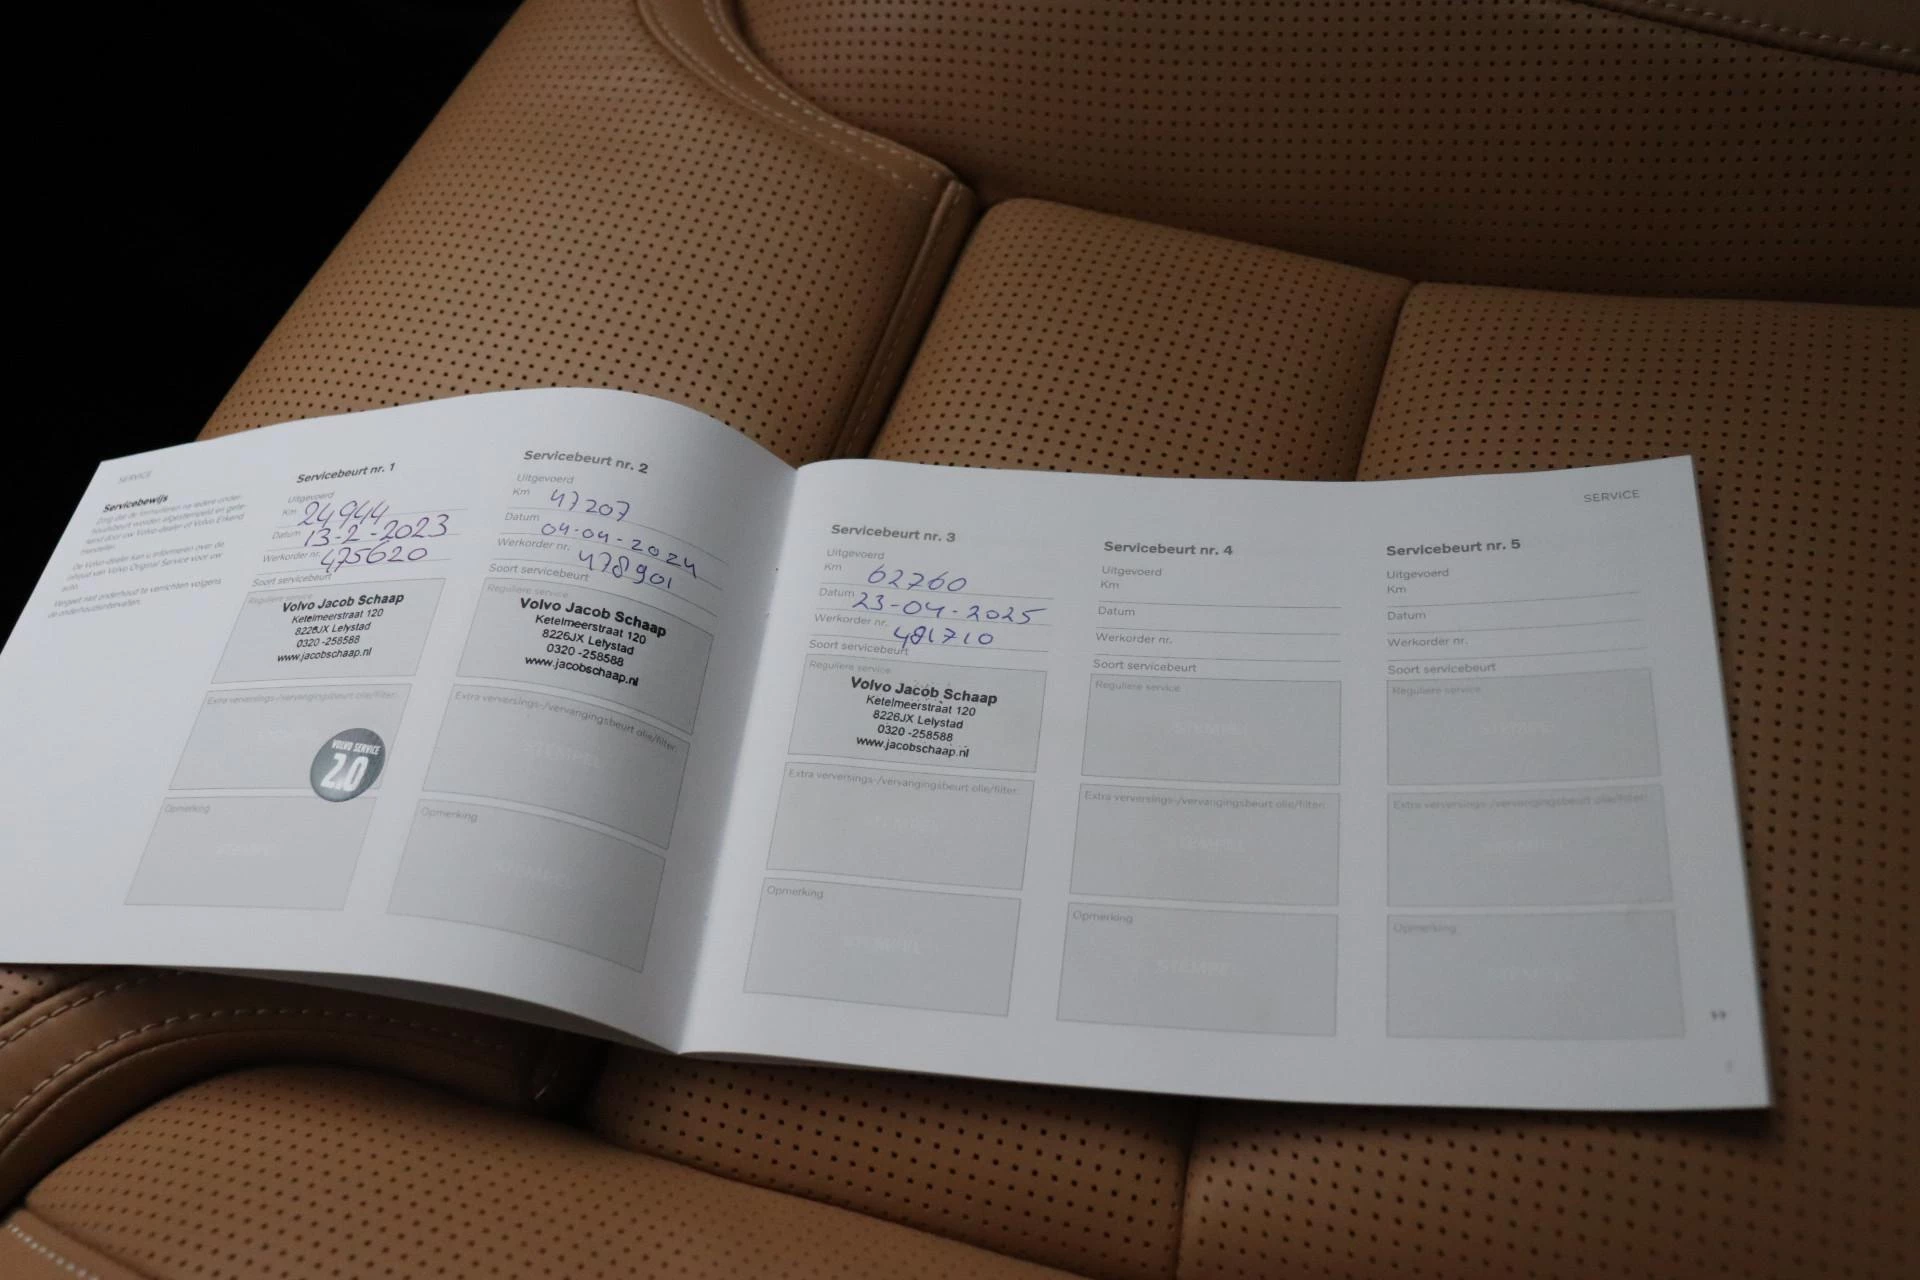 SERVICE
Servicebewijs
Zorg dat de formulieren na iedere onder-
houdsbeurt worden afgestempeld en gete-
kend door uw Volvo-dealer of Volvo Erkend
Hersteller.
De Volvo-dealer kan u informeren over de
inhoud van Volvo Original Service voor uw
auto.
Vergeet niet onderhoud te verrichten volgens
de onderhoudsintervallen.
Servicebeurt nr. 1
Uitgevoerd
Km 24944
Datum 13-2-2023
Werkorder nr. 475620
Soort servicebeurt
Reguliere service
Volvo Jacob Schaap
Ketelmeerstraat 120
8226JX Lelystad
0320 -258588
www.jacobschaap.nl
Extra verversings-/vervangingsbeurt olie/filter:
VOLVO SERVICE
2.0
Opmerking
STEMPEL
Servicebeurt nr. 2
Uitgevoerd
Km 47207
Datum 04-04-2024
Werkorder nr. 478901
Soort servicebeurt
Reguliere service
Volvo Jacob Schaap
Ketelmeerstraat 120
8226JX Lelystad
0320 -258588
www.jacobschaap.nl
Extra verversings-/vervangingsbeurt olie/filter:
STEMPEL
Opmerking
STEMPEL
SERVICE
Servicebeurt nr. 3
Uitgevoerd
Km 62760
Datum 23-04-2025
Werkorder nr. 481710
Soort servicebeurt
Reguliere service
Volvo Jacob Schaap
Ketelmeerstraat 120
8226JX Lelystad
0320 -258588
www.jacobschaap.nl
Extra verversings-/vervangingsbeurt olie/filter:
STEMPEL
Opmerking
STEMPEL
Servicebeurt nr. 4
Uitgevoerd
Km
Datum
Werkorder nr.
Soort servicebeurt
Reguliere service
STEMPEL
Extra verversings-/vervangingsbeurt olie/filter:
STEMPEL
Opmerking
STEMPEL
Servicebeurt nr. 5
Uitgevoerd
Km
Datum
Werkorder nr.
Soort servicebeurt
Reguliere service
STEMPEL
Extra verversings-/vervangingsbeurt olie/filter:
STEMPEL
Opmerking
STEMPEL